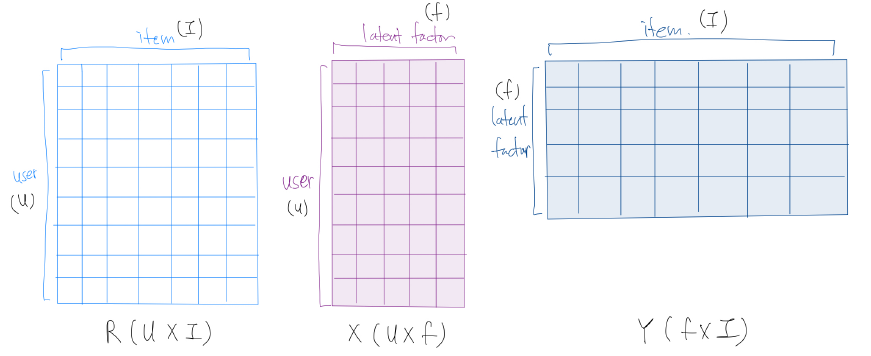 item (I)
user
(U)
R (U X I)
(f)
latent factor
user
(u)
X (U X f)
item. (I)
(f)
latent
factor
Y (f X I)